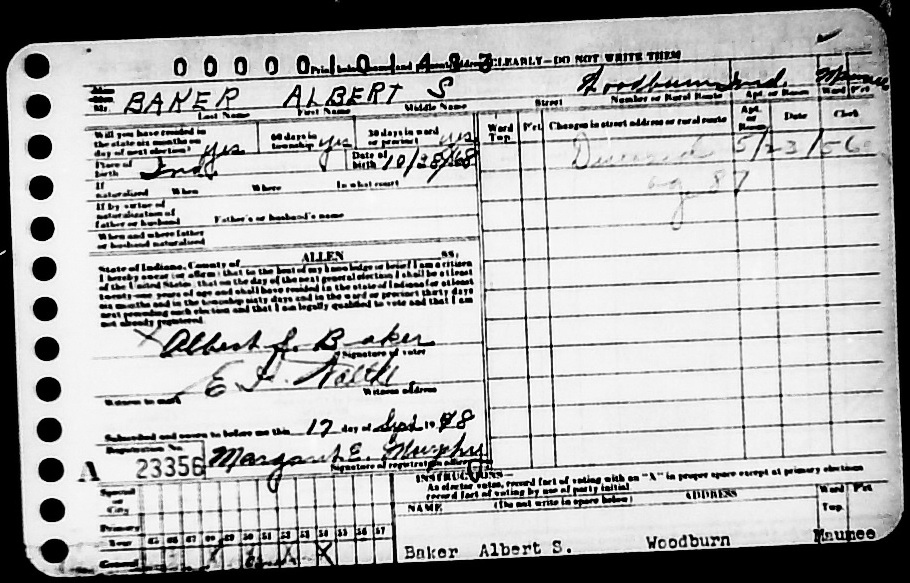 00000101483
CLEARLY—DO NOT WRITE THEM
BAKER ALBERT S
Woodburn Ind. Maumee
Last Name First Name Middle Name Street Number or Rural Route Apt. or Room Ward Pct.
Will you have resided in the state six months on day of next election? yes 60 days in township yes 30 days in ward or precinct yes
Ward Twp. Pct. Changes in street address or rural route Apt. or Room Date Clerk
Place of birth Ind. Date of birth 10/28/68
Deceased 5/23/56
age 87
If naturalized When Where In what court
If by virtue of naturalization of father or husband Father's or husband's name
When and where father or husband naturalized
State of Indiana, County of ALLEN SS:
I hereby swear (or affirm) that to the best of my knowledge or belief I am a citizen
of the United States, that on the day of the next general election I shall be at least
twenty-one years of age and shall have resided in the state of Indiana for at least
six months and in the township sixty days and in the ward or precinct thirty days
next preceding such election and that I am legally qualified to vote and that I am
not already registered.
X Albert S. Baker
Signature of voter
Witness to mark Witness address
Subscribed and sworn to before me this 17 day of Sept 1948
Registration No.
A 23356 Margaret E. Murphy
Signature of registration officer
INSTRUCTIONS—
An elector votes, record fact of voting with an "X" in proper space except at primary elections
record fact of voting by use of party initial
Special or City
NAME (Do not write in space below) ADDRESS Ward Pct.
Twp.
Primary
Year 45 46 47 48 49 50 51 52 53 54 55 56 57
General X X X
Baker Albert S. Woodburn Maumee